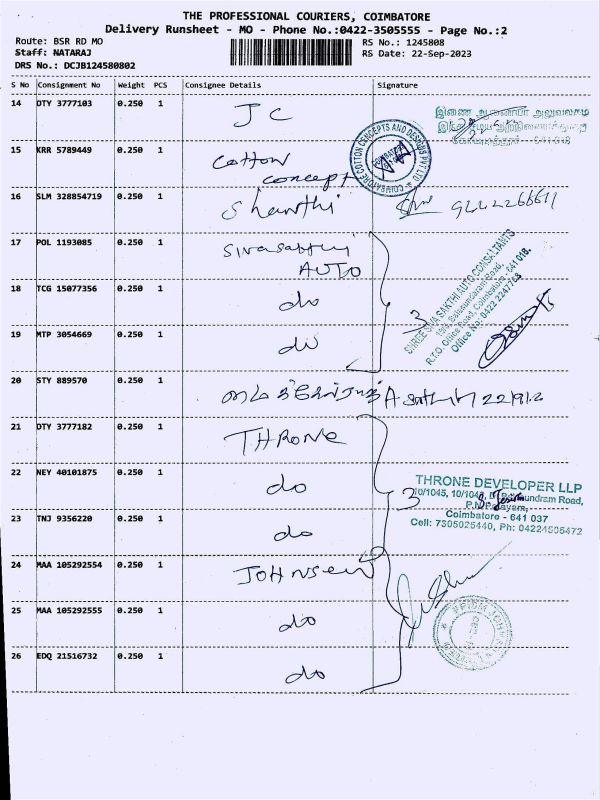 THE PROFESSIONAL COURIERS, COIMBATORE
Delivery Runsheet - MO - Phone No.:0422-3505555 - Page No.:2
Route: BSR RD MO
RS No.: 1245808
Staff: NATARAJ
RS Date: 22-Sep-2023
DRS No.: DCJB124580802
S No Consignment No Weight PCS Consignee Details Signature
14 OTY 3777103 0.250 1 JC
இணை ஆணையர் அலுவலகம்
இந்து சமய அறநிலையத்துறை
641 018
15 KRR 5789449 0.250 1 Cotton
concept
COIMBATORE COTTON CONCEPTS AND DESIGNS PVT LTD
16 SLM 328854719 0.250 1 Shanthi
17 POL 1193085 0.250 1 Sivasakthi
AUTO
18 TCG 15077356 0.250 1 do
3
SHREE SIVA SAKTHI AUTO CONSULTANTS
Balasundaram Road,
R.T.O. Office Road, Coimbatore - 641 018.
Office No: 0422 2247768
19 MTP 3054669 0.250 1 do
20 STY 889570 0.250 1
21 OTY 3777182 0.250 1 THRONE
22 NEY 40101875 0.250 1 do
3
THRONE DEVELOPER LLP
Coimbatore - 641 037
23 TNJ 9356220 0.250 1 do
24 MAA 105292554 0.250 1 JOHNSON
25 MAA 105292555 0.250 1 do
26 EDQ 21516732 0.250 1 do